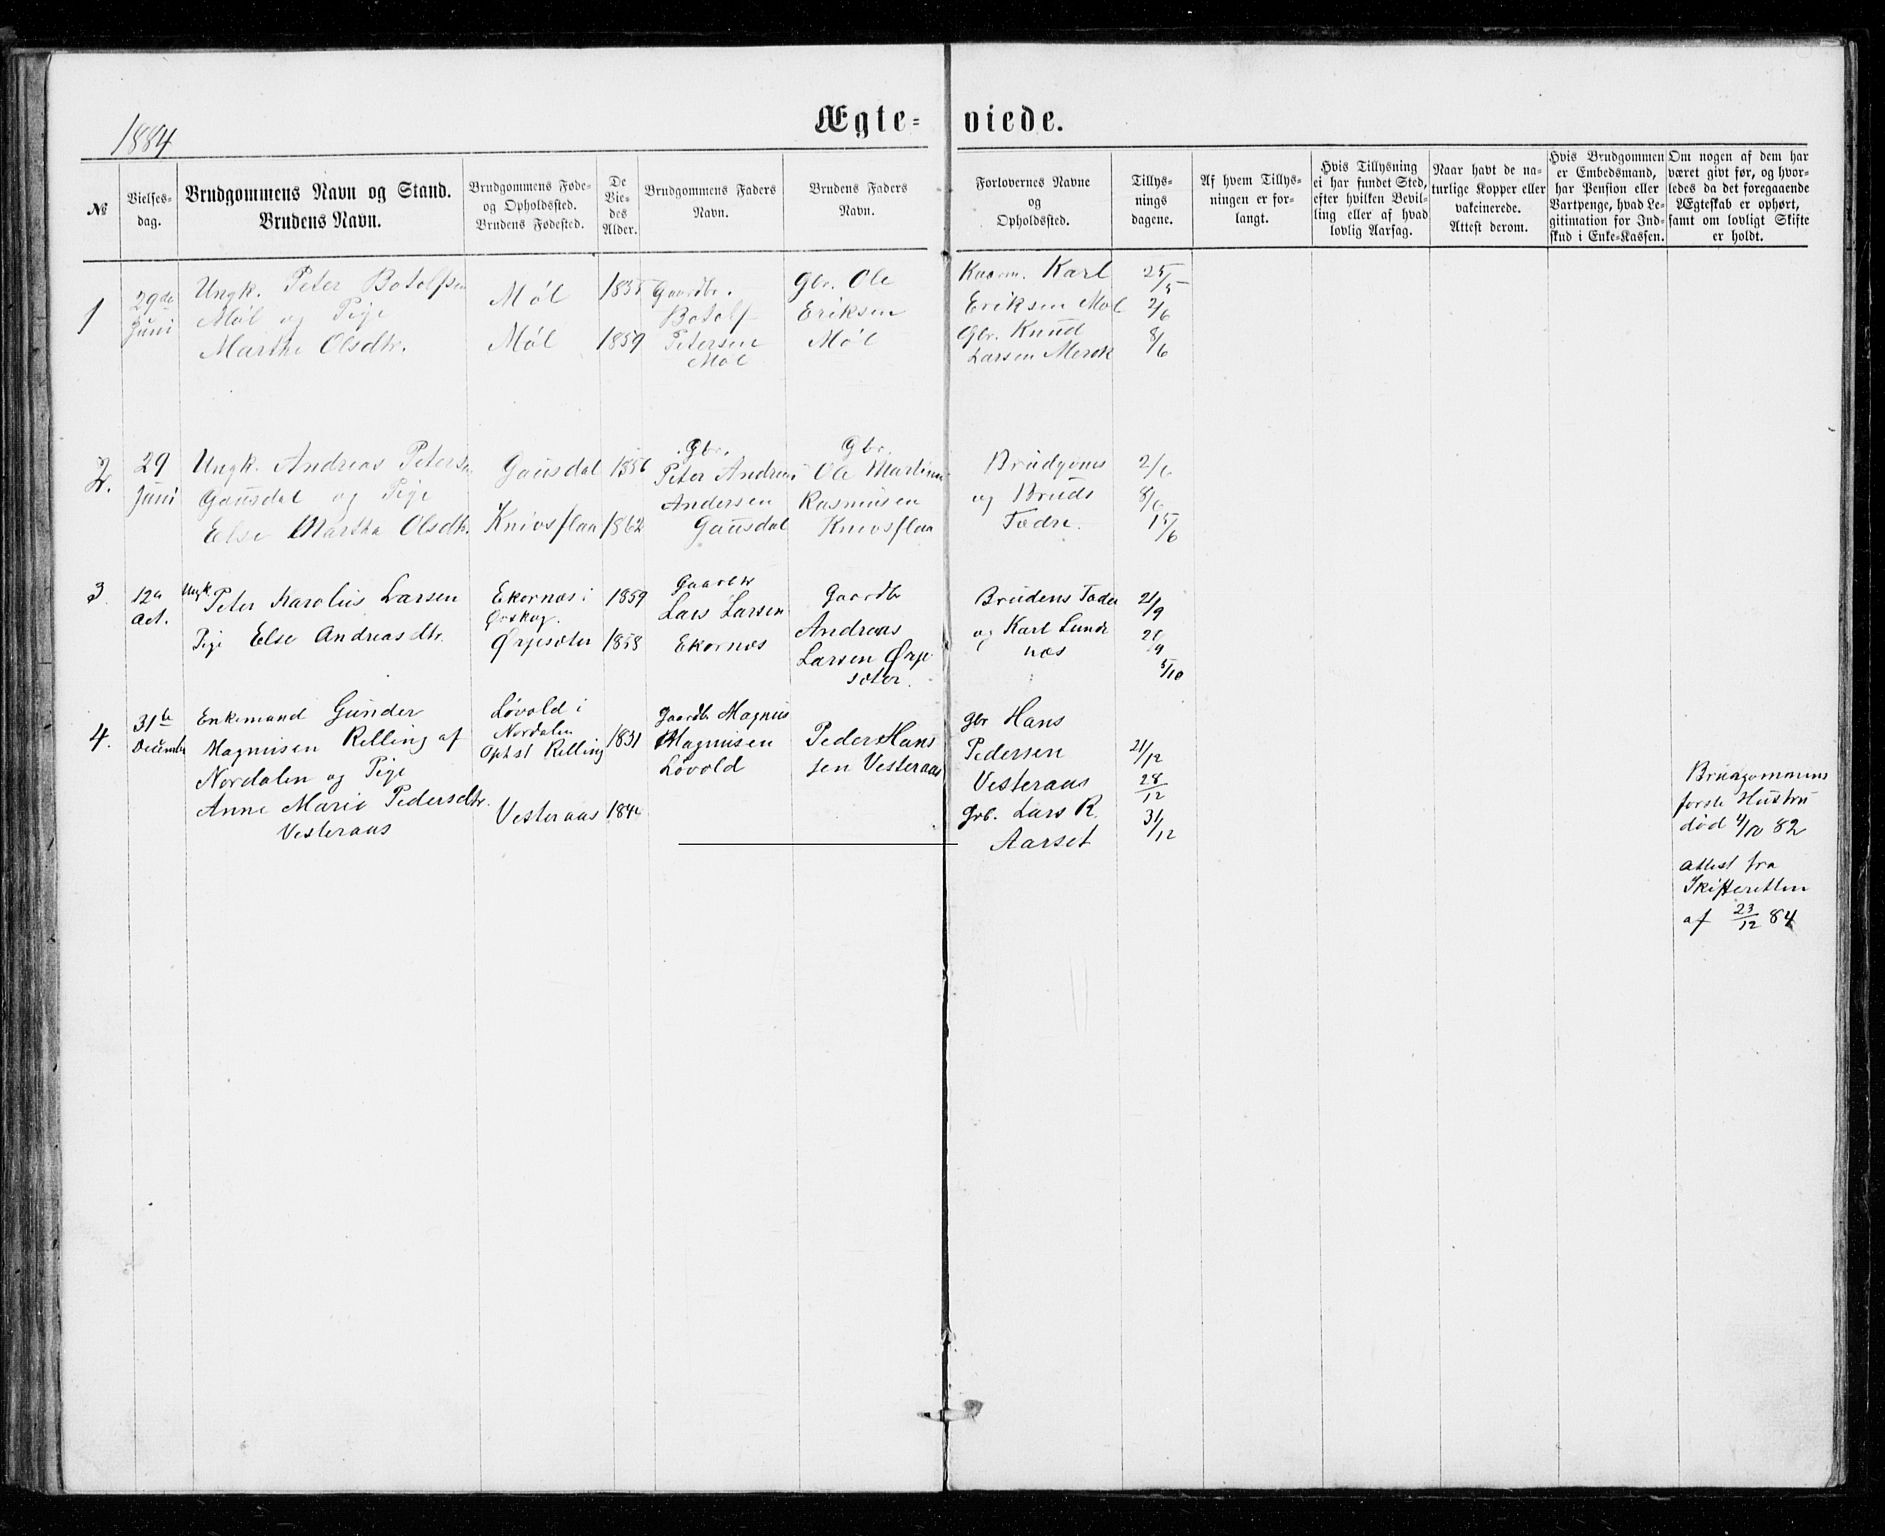 1884
Ægte-viede.
№
Vielses-
dag.
Brudgommens Navn og Stand.
Brudens Navn.
Brudgommens Føde-
og Opholdssted.
Brudens Fødested.
De
Vie-
des
Alder.
Brudgommens Faders
Navn.
Brudens Faders
Navn.
Forlovernes Navne
og
Opholdssted.
Tillys-
nings
dagene.
Af hvem Tillys-
ningen er for-
langt.
Hvis Tillysning
ei har fundet Sted,
efter hvilken Bevil-
ling eller af hvad
lovlig Aarsag.
Naar havt de na-
turlige Kopper eller
vakcinerede.
Attest derom.
Hvis Brudgommen
er Embedsmand,
har Pension eller
Vartpenge, hvad Le-
gitimation for Ind-
skud i Enke-Kassen.
Om nogen af dem har
været givt før, og hvor-
ledes da det foregaaende
Ægteskab er ophørt,
samt om lovligt Skifte
er holdt.
1
29de
Juni
Ungk. Peter Botolfsen
Møl og Pige
Marthe Olsdtr.
Møl
Møl
1859
Gaardbr.
Botolf
Petersen
Møl
Gbr. Ole
Eriksen
Møl
Karl
Eriksen Møl
Gbr. Knud
Larsen Merok
25/5
2/6
8/6
2.
29
Juni
Ungk. Andreas Petersen
Gausdal og Pige
Else Martha Olsdtr.
Gausdal
Knivsflaa
1856
1862
Gbr.
Peter Andreas
Andersen
Gausdal
Gbr.
Ole Martinus
Rasmusen
Knivsflaa
Brudgoms
og Bruds
Fædre.
2/6
8/6
15/6
3.
12te
Oct.
Ungk. Peter Karolius Larsen
Pige Else Andreasdtr.
Ekornæs i
Ørskog.
Ørjesæter
1859
1858
Gaardbr
Lars Larsen
Ekornæs
Gaardbr
Andreas
Larsen Ørje
sæter.
Brudens Fader
og Karl Lunde
næs
21/9
5/10
4.
31te
December
Enkemand Gunder
Magnusen Relling af
Nordalen og Pige
Anne Marie Pedersdtr.
Vesteraas
Løvold i
Nordalen
Ophst Relling
Vesteraas
1831
Gaardbr Magnus
Magnusen
Løvold
Peder Hans
sen Vesteraas
gbr Hans
Pedersen
Vesteraas
Gbr. Lars R.
Aarset
21/12
28/12
31/12
Brudgommens
første Hustru
død 4/10 82
Attest fra
Skifteretten
af 23/12 84